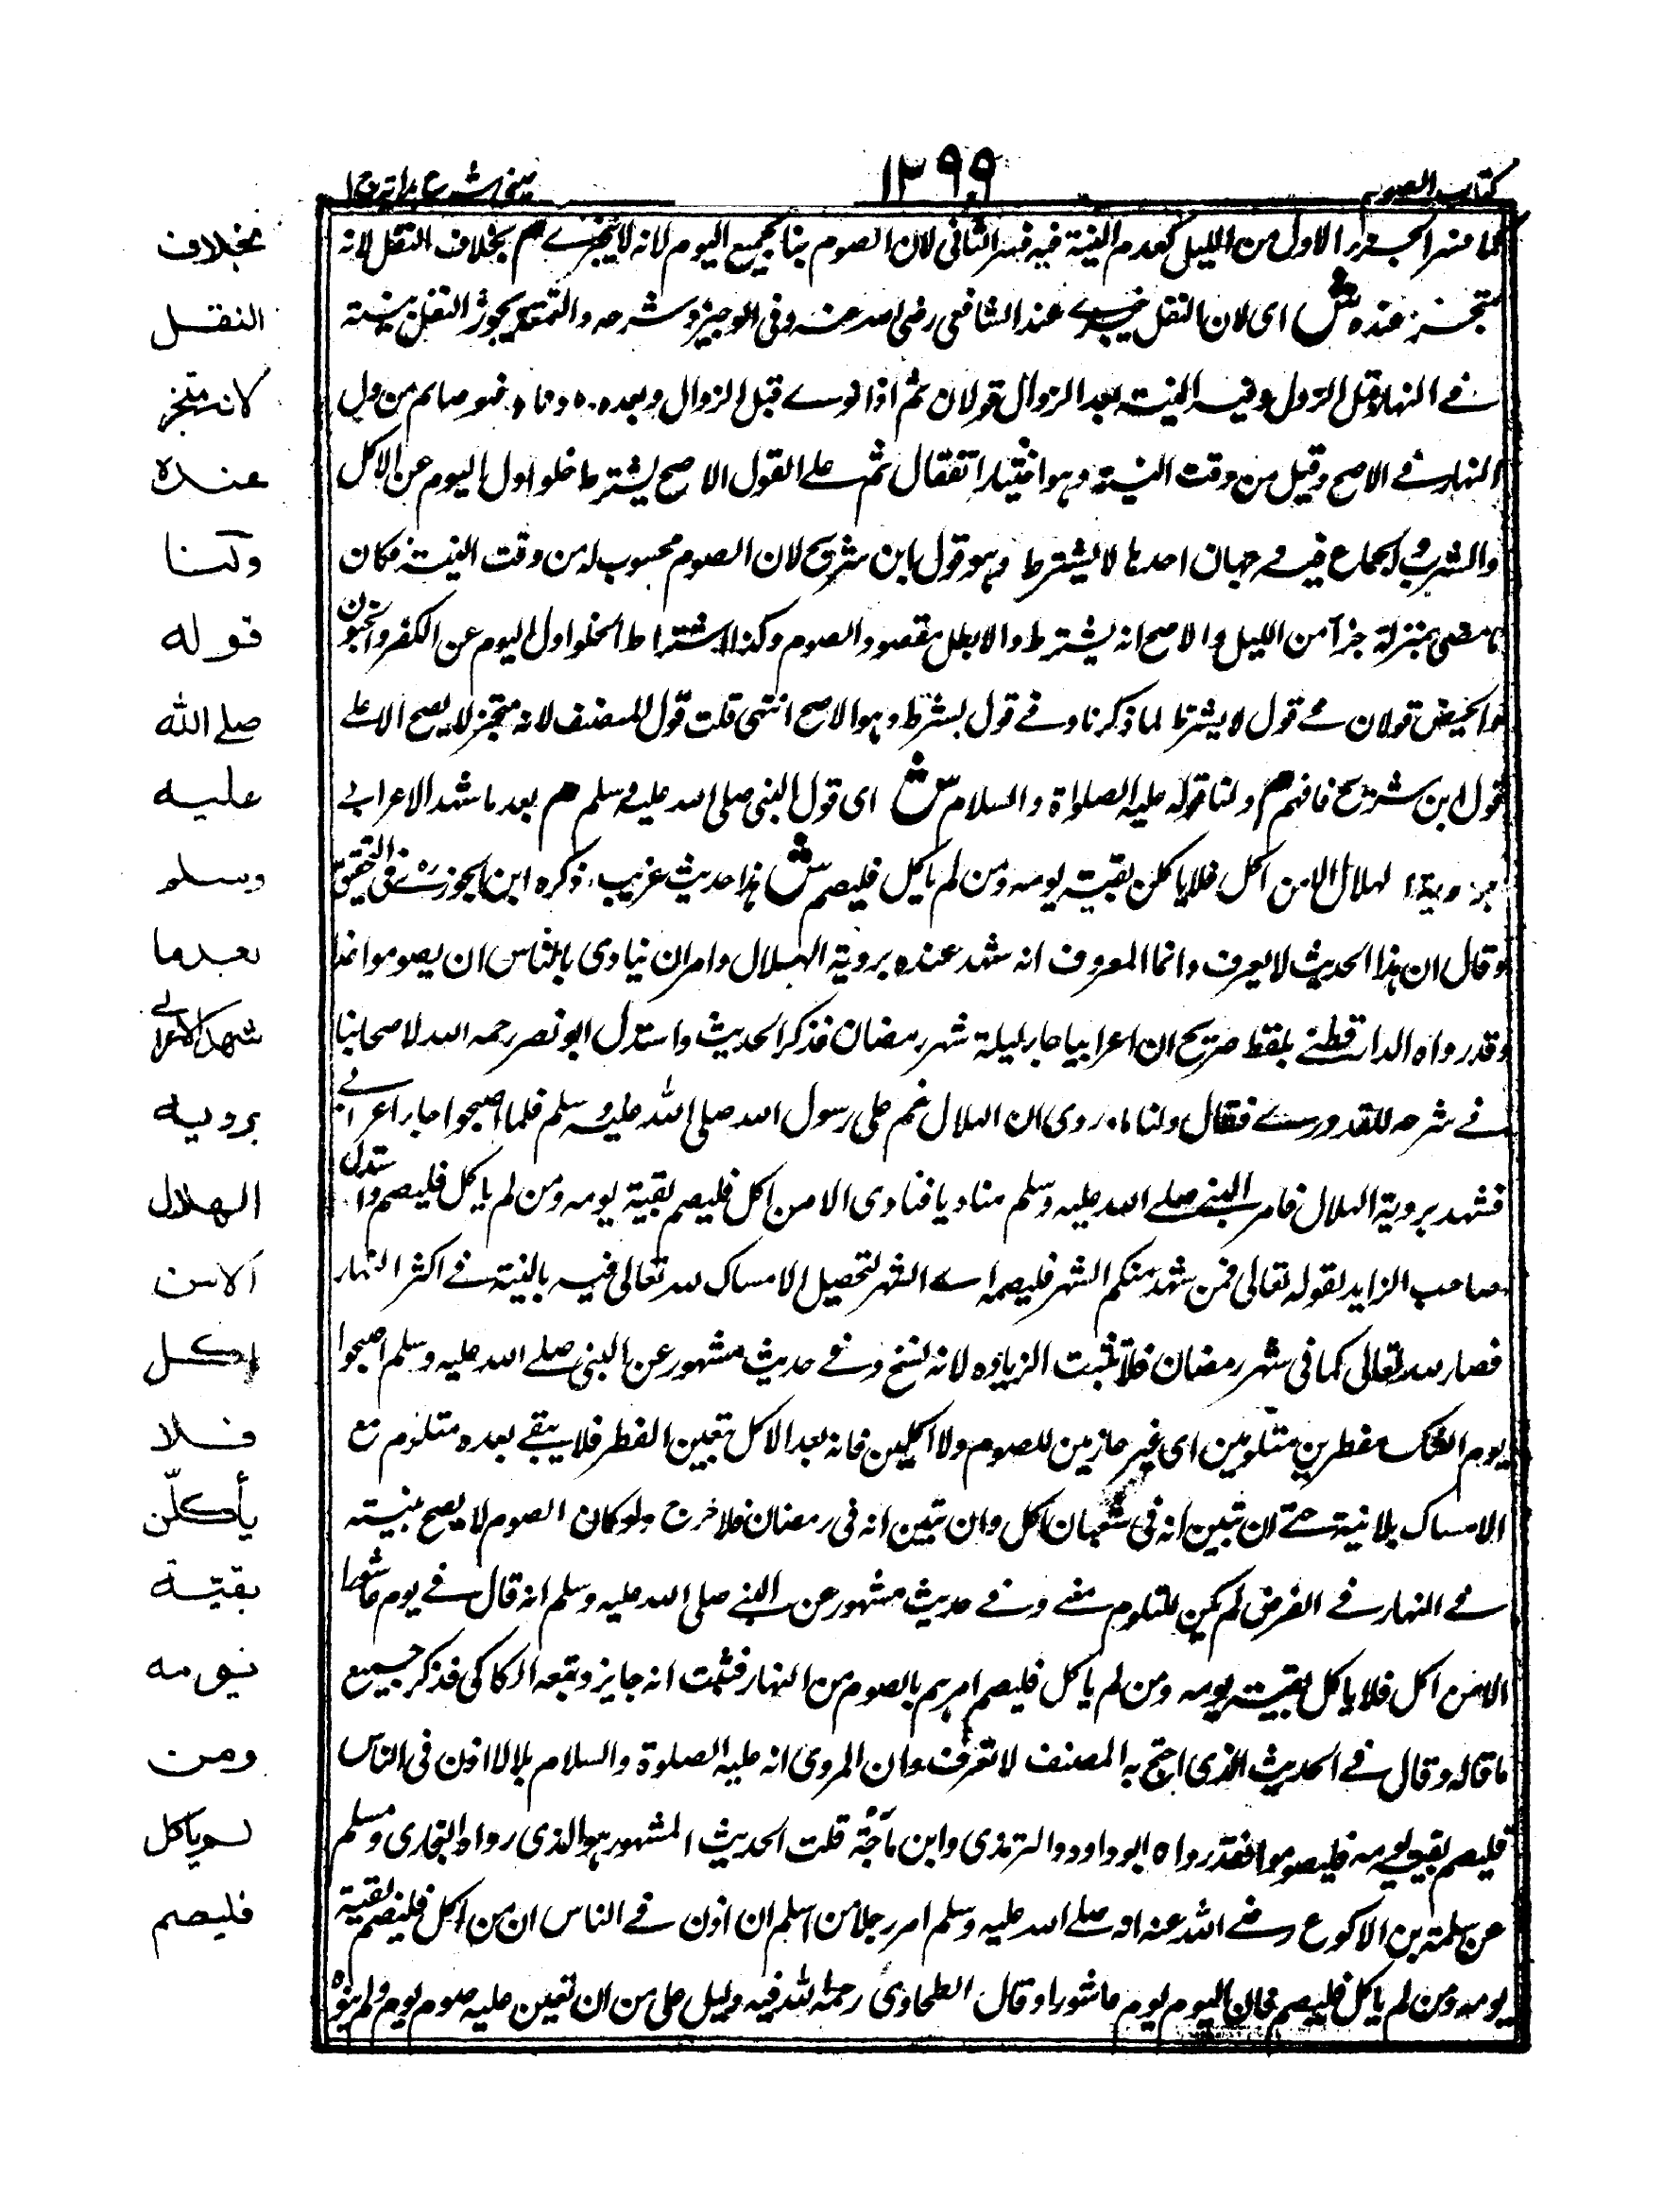 كتاب الصوم
١٣٩٩
عينى شرح هداية ج ١
الجزء الاول من الليل لعدم النية فيه فسد الثانى لان الصوم بناء جميع اليوم لانه لا يتجزى هم بخلاف النفل لانه
متجز عنده ش اى لان النفل متجزى عند الشافعى رضى الله عنه وفى الوجيز وشرحه والتتمة يجوز النفل بنية
فے النهار قبل الزوال وفيه النية بعد الزوال قولان ثم اذا نوے قبل الزوال وبعده فهو صائم من اول
النهار فے الاصح وقيل من وقت النية وهو اختيار القفال ثم على القول الاصح يشترط خلو اول اليوم عن الاكل
والشرب والجماع فيه وجهان احدها لا يشترط وهو قول ابن شريح لان الصوم محسوب له من وقت النية فكان
ما مضى بمنزلة جزأ من الليل والاصح انه يشترط والا بطل مقصود الصوم وكذا اشتراط الخلو اول اليوم عن الكفر والجنون
والحيض قولان فے قول لا يشترط لما ذكرنا وفے قول يشترط وهو الاصح انتهى قلت قول المصنف لانه متجز لا يصح الا على
قول ابن شريح فافهم هم ولنا قوله عليه الصلواة والسلام ش اى قول النبى صلى الله عليه وسلم هم بعد ما شهد الاعرابے
بروية الهلال الا من اكل فلا ياكلن بقية يومه ومن لم ياكل فليصم ش هذا حديث غريب ذكره ابن الجوزے فى التحقيق
وقال ان هذا الحديث لا يعرف وانما المعروف انه شهد عنده بروية الهلال وامر ان ينادى بالناس ان يصوموا غدا
وقد رواه الدارقطنے بلفظ صريح ان اعرابيا جاء ليلة شهر رمضان فذكر الحديث واستدل ابو نصر رحمه الله لاصحابنا
فے شرحه للقدورے فقال ولنا ما روى ان الهلال غم على رسول الله صلى الله عليه وسلم فلما اصبحوا جاء اعرابے
فشهد بروية الهلال فامر النبى صلے الله عليه وسلم مناديا فنادى الا من اكل فليصم بقية يومه ومن لم ياكل فليصم واستدل
صاحب الزايد لقوله تعالى فمن شهد منكم الشهر فليصمه اے الشهر لتحصيل الامساك لله تعالى فيه بالنية فے اكثر النهار
فصار لله تعالى كما فى شهر رمضان فلا تثبت الزيادة لانه نسخ وفے حديث مشهور عن النبى صلے الله عليه وسلم اصبحوا
يوم الشك مفطرين متلومين اى غير جازمين للصوم ولا اكلين فانه بعد الاكل تعين الفطر فلا يبقے بعده متلوم مع
الامساك بلانية حتے ان تبين انه فى شعبان اكل وان تبين انه فى رمضان فلا حرج ولو كان الصوم لا يصح بنية
فے النهار فے الفرض لم يكن للتلوم معنے وفے حديث مشهور عن النبے صلى الله عليه وسلم انه قال فے يوم عاشورا
الا من اكل فلا ياكل بقية يومه ومن لم ياكل فليصم امرهم بالصوم من النهار فثبت انه جايز وتبعه الكاكى فذكر جميع
ما قاله وقال فے الحديث الذى احتج به المصنف لا تعرف وان المروى انه عليه الصلوة والسلام بلالا اذن فى الناس
فليصم بقية يومه فليصوموا فقد رواه ابو داود والترمذى وابن ماجة قلت الحديث المشهور هو الذى رواه البخارى ومسلم
عن سلمة بن الاكوع رضے الله عنه انه صلے الله عليه وسلم امر رجلا من اسلم ان اذن فے الناس ان من اكل فليصم بقية
يومه ومن لم ياكل فليصم فان اليوم يوم عاشورا وقال الطحاوى رحمه الله فيه دليل على من ان تعين عليه صوم يوم ولم ينوه
بخلاف
النفل
لانه متجز
عنده
ولنا
قوله
صلے الله
عليه
وسلم
بعد ما
شهد الاعرابے
بروية
الهلال
الا من
اكل
فلا
يأكلنّ
بقيّة
يومه
ومن
لم ياكل
فليصم